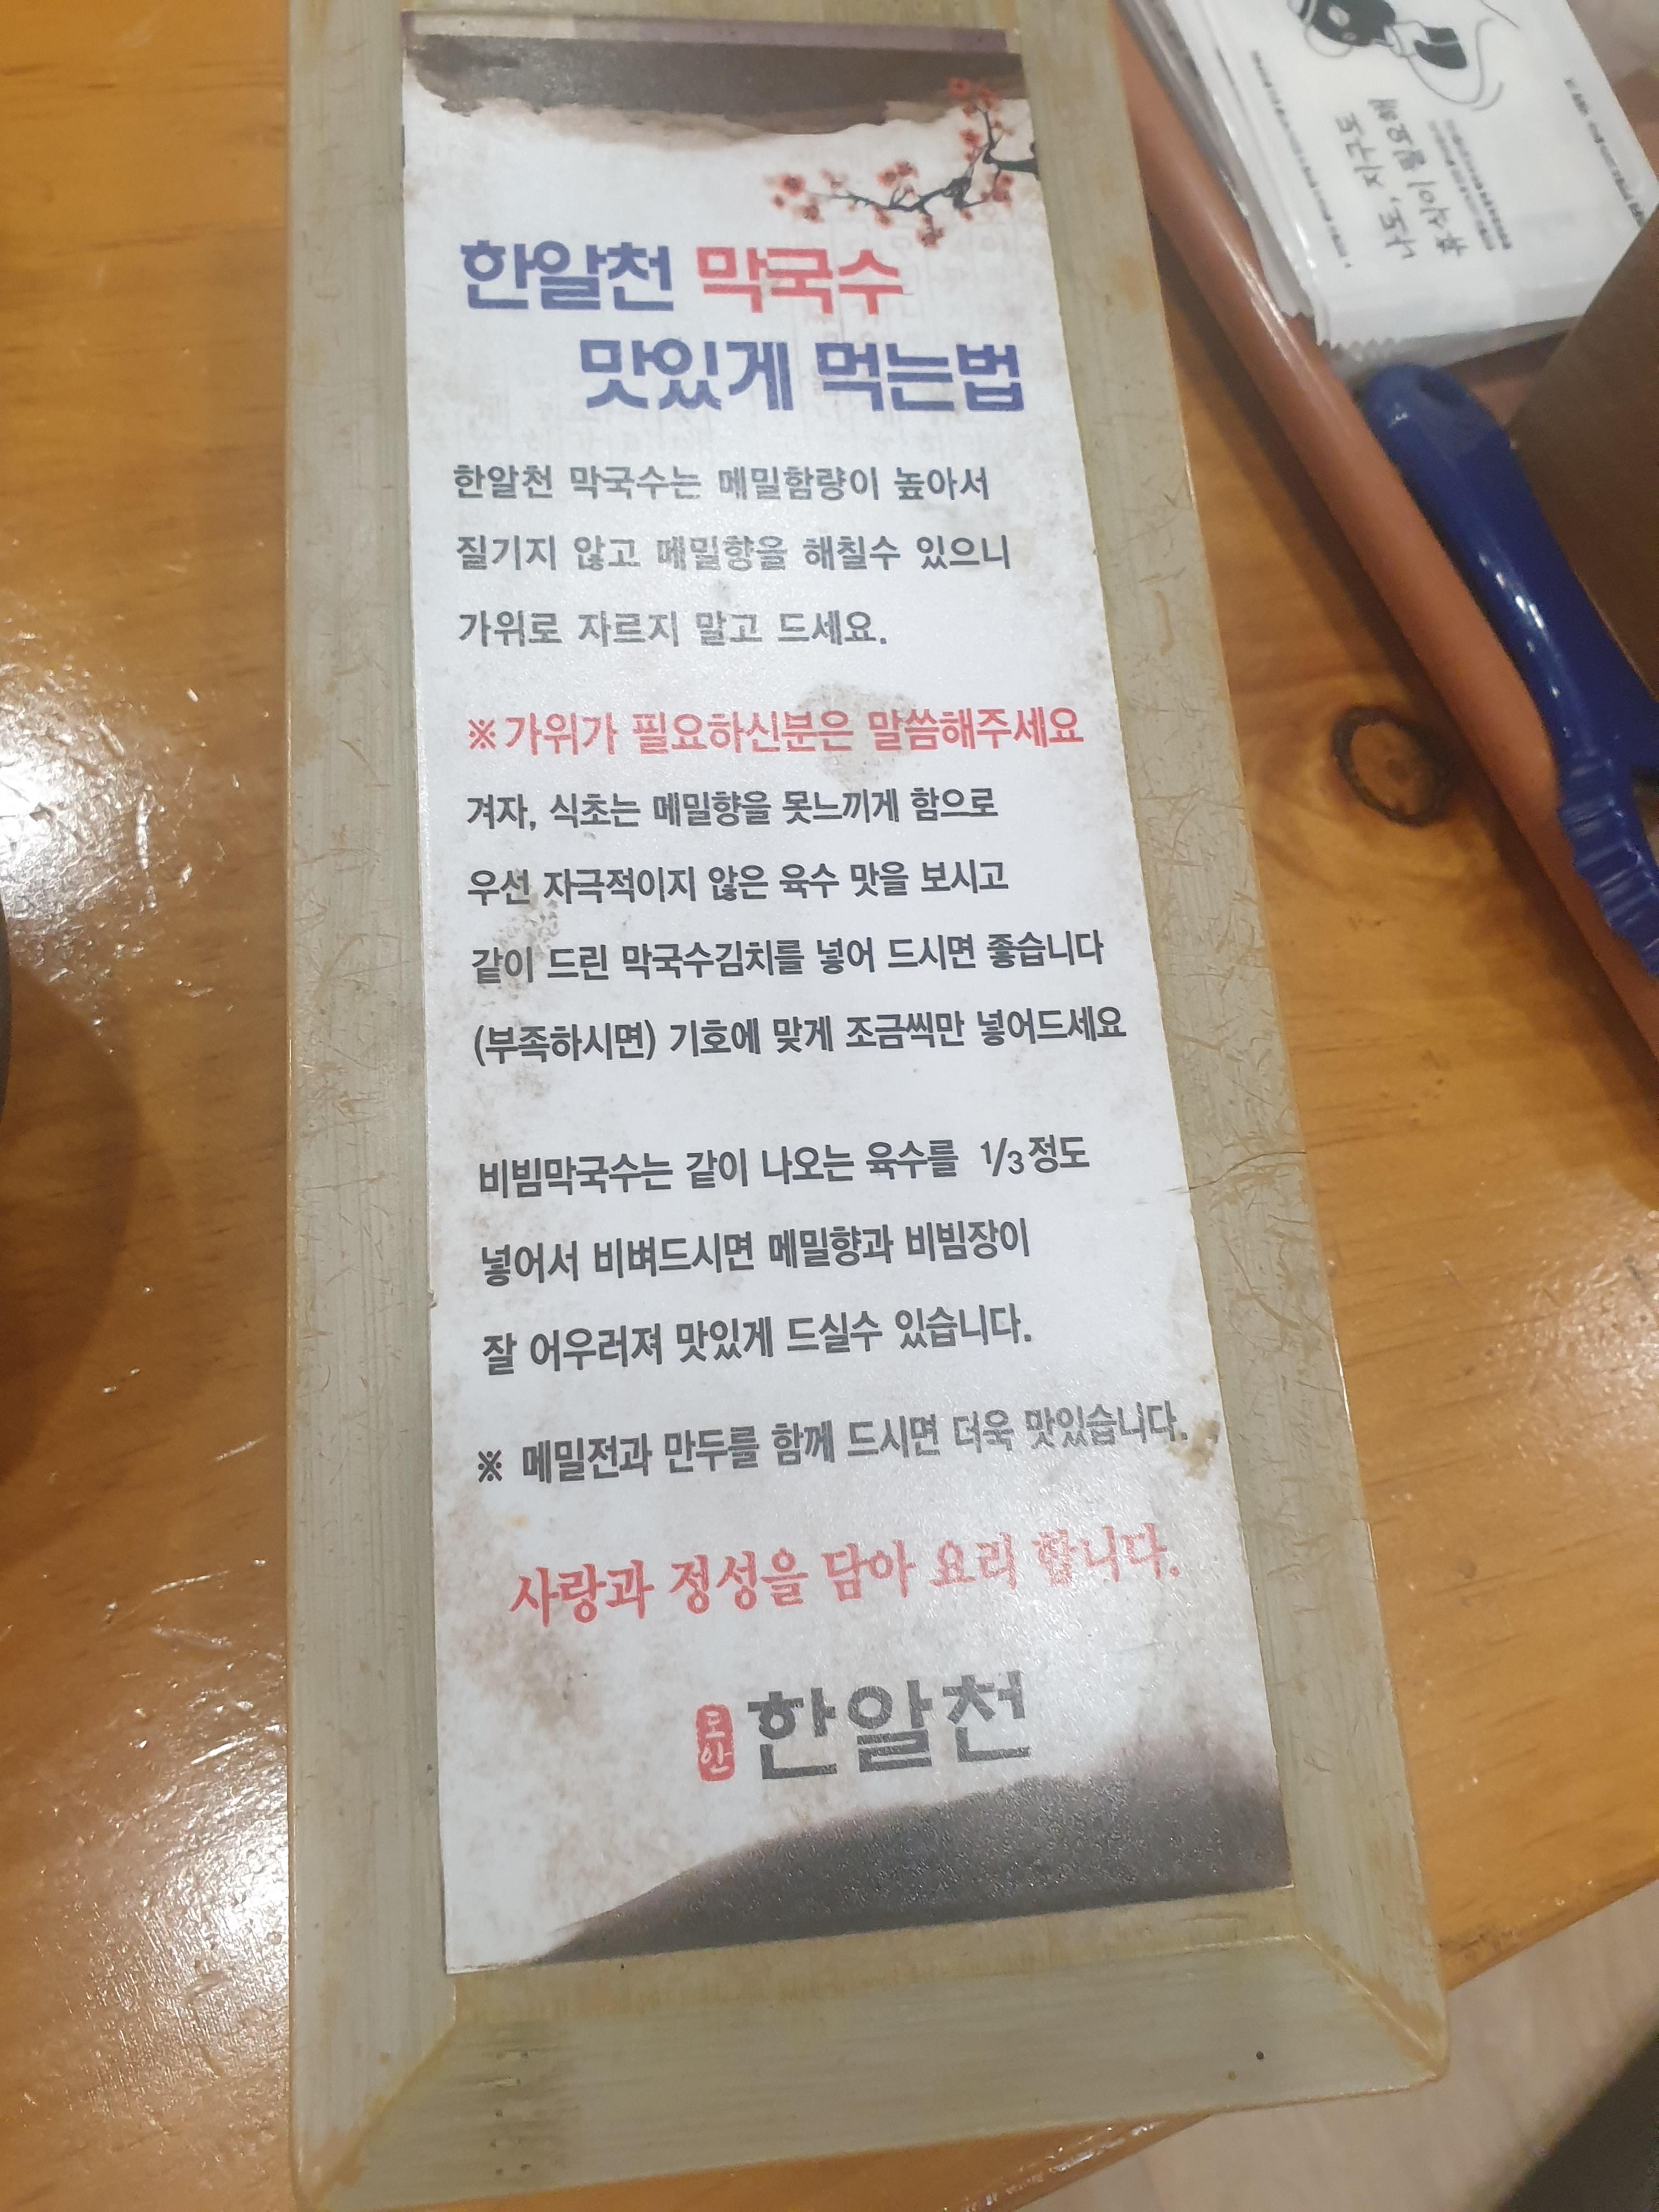 한알천 막국수
맛있게 먹는법
한알천 막국수는 메밀함량이 높아서
질기지 않고 메밀향을 해칠수 있으니
가위로 자르지 말고 드세요.
※가위가 필요하신분은 말씀해주세요
겨자, 식초는 메밀향을 못느끼게 함으로
우선 자극적이지 않은 육수 맛을 보시고
같이 드린 막국수김치를 넣어 드시면 좋습니다
(부족하시면) 기호에 맞게 조금씩만 넣어드세요
비빔막국수는 같이 나오는 육수를 1/3정도
넣어서 비벼드시면 메밀향과 비빔장이
잘 어우러져 맛있게 드실수 있습니다.
※ 메밀전과 만두를 함께 드시면 더욱 맛있습니다.
사랑과 정성을 담아 요리 합니다.
도안 한알천
나도, 지구도
휴식이 필요해